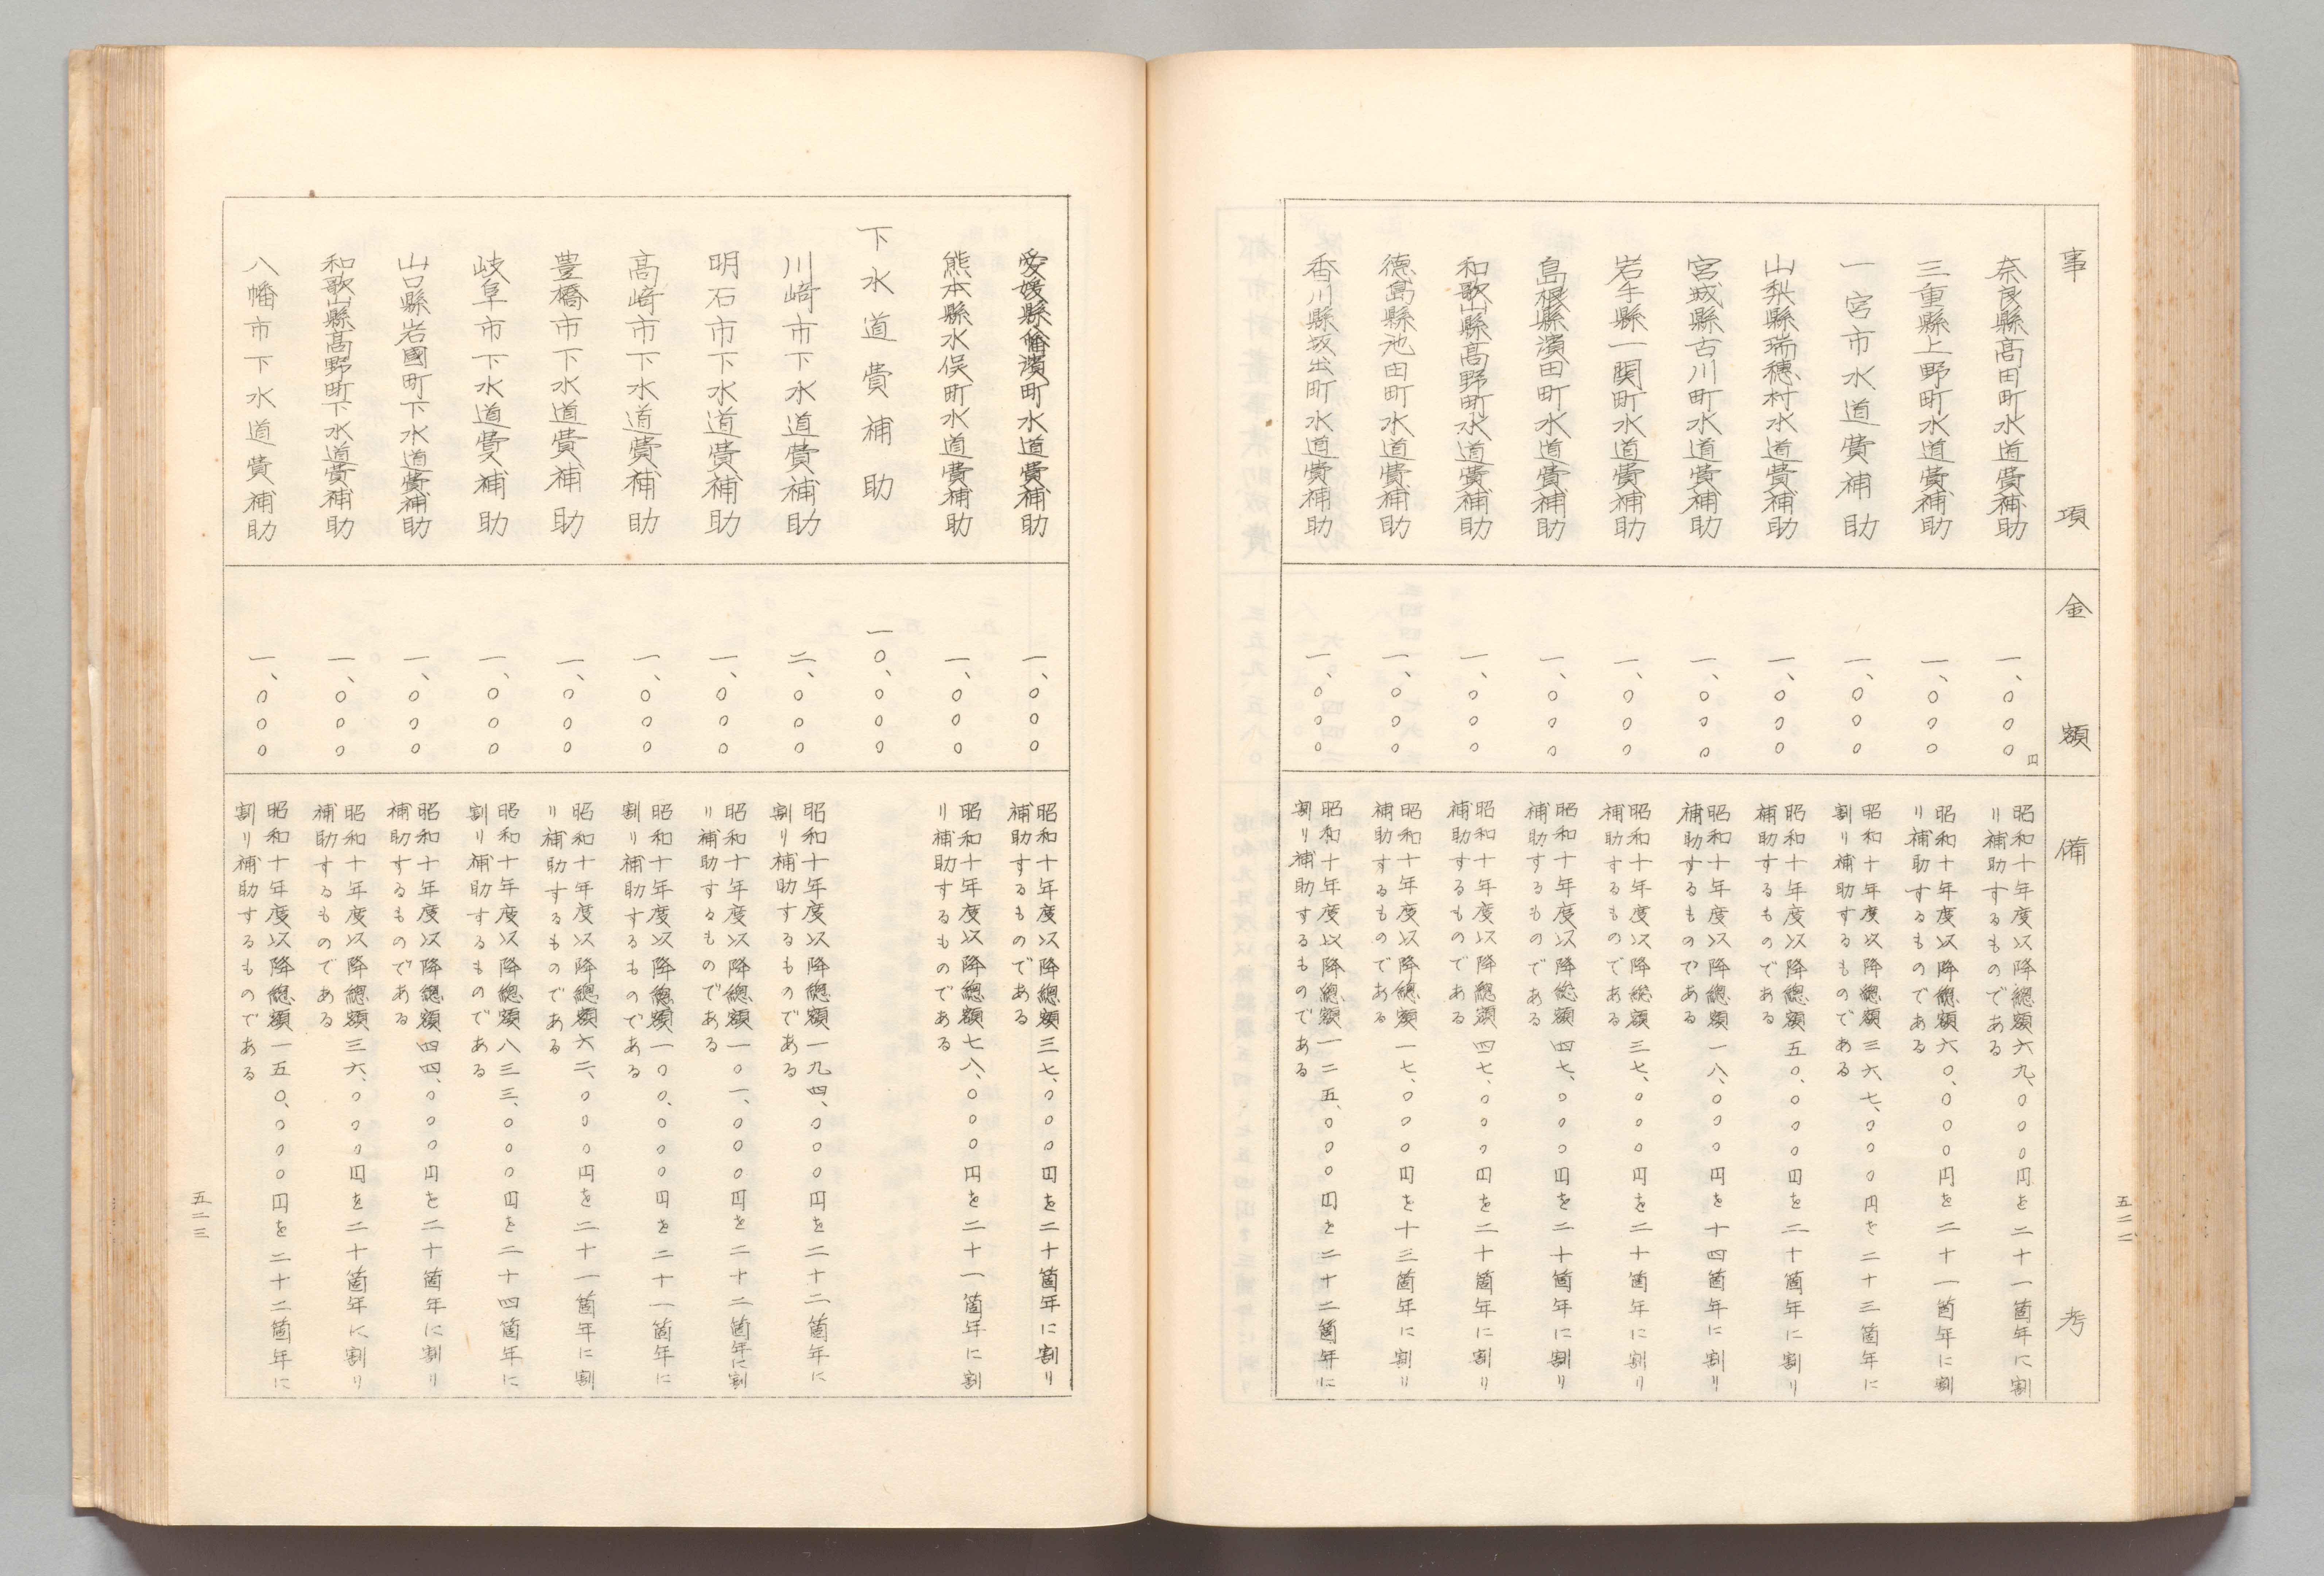 事項
金額
備考
奈良縣高田町水道費補助
一、〇〇〇円
昭和十年度以降總額六九、〇〇〇円を二十一箇年に割
り補助するものである
三重縣上野町水道費補助
一、〇〇〇
昭和十年度以降總額六〇、〇〇〇円を二十一箇年に割
り補助するものである
一宮市水道費補助
一、〇〇〇
昭和十年度以降總額三六七、〇〇〇円を二十三箇年に
割り補助するものである
山梨縣瑞穗村水道費補助
一、〇〇〇
昭和十年度以降總額五〇、〇〇〇円を二十箇年に割り
補助するものである
宮城縣古川町水道費補助
一、〇〇〇
昭和十年度以降總額一八、〇〇〇円を十四箇年に割り
補助するものである
岩手縣一関町水道費補助
一、〇〇〇
昭和十年度以降総額三七、〇〇〇円を二十箇年に割り
補助するものである
島根縣濱田町水道費補助
一、〇〇〇
昭和十年度以降総額四七、〇〇〇円を二十箇年に割り
補助するものである
和歌山縣高野町水道費補助
一、〇〇〇
昭和十年度以降總額四七、〇〇〇円を二十箇年に割り
補助するものである
徳島縣池田町水道費補助
一、〇〇〇
昭和十年度以降總額一七、〇〇〇円を十三箇年に割り
補助するものである
香川縣坂出町水道費補助
一、〇〇〇
昭和十年度以降總額一二五、〇〇〇円を二十二箇年に
割り補助するものである
五二二
愛媛縣八幡濱町水道費補助
一、〇〇〇
昭和十年度以降總額三七、〇〇〇円を二十箇年に割り
補助するものである
熊本縣水俣町水道費補助
一、〇〇〇
昭和十年度以降總額七八、〇〇〇円を二十一箇年に割
り補助するものである
下水道費補助
一〇、〇〇〇
川崎市下水道費補助
二、〇〇〇
昭和十年度以降總額一九四、〇〇〇円を二十二箇年に
割り補助するものである
明石市下水道費補助
一、〇〇〇
昭和十年度以降總額一〇一、〇〇〇円を二十二箇年に割
り補助するものである
高崎市下水道費補助
一、〇〇〇
昭和十年度以降總額一〇〇、〇〇〇円を二十一箇年に
割り補助するものである
豊橋市下水道費補助
一、〇〇〇
昭和十年度以降總額六二、〇〇〇円を二十一箇年に割
り補助するものである
岐阜市下水道費補助
一、〇〇〇
昭和十年度以降總額八三三、〇〇〇円を二十四箇年に
割り補助するものである
山口縣岩國町下水道費補助
一、〇〇〇
昭和十年度以降總額四四、〇〇〇円を二十箇年に割り
補助するものである
和歌山縣高野町下水道費補助
一、〇〇〇
昭和十年度以降總額三六、〇〇〇円を二十箇年に割り
補助するものである
八幡市下水道費補助
一、〇〇〇
昭和十年度以降總額一五〇、〇〇〇円を二十二箇年に
割り補助するものである
五二三